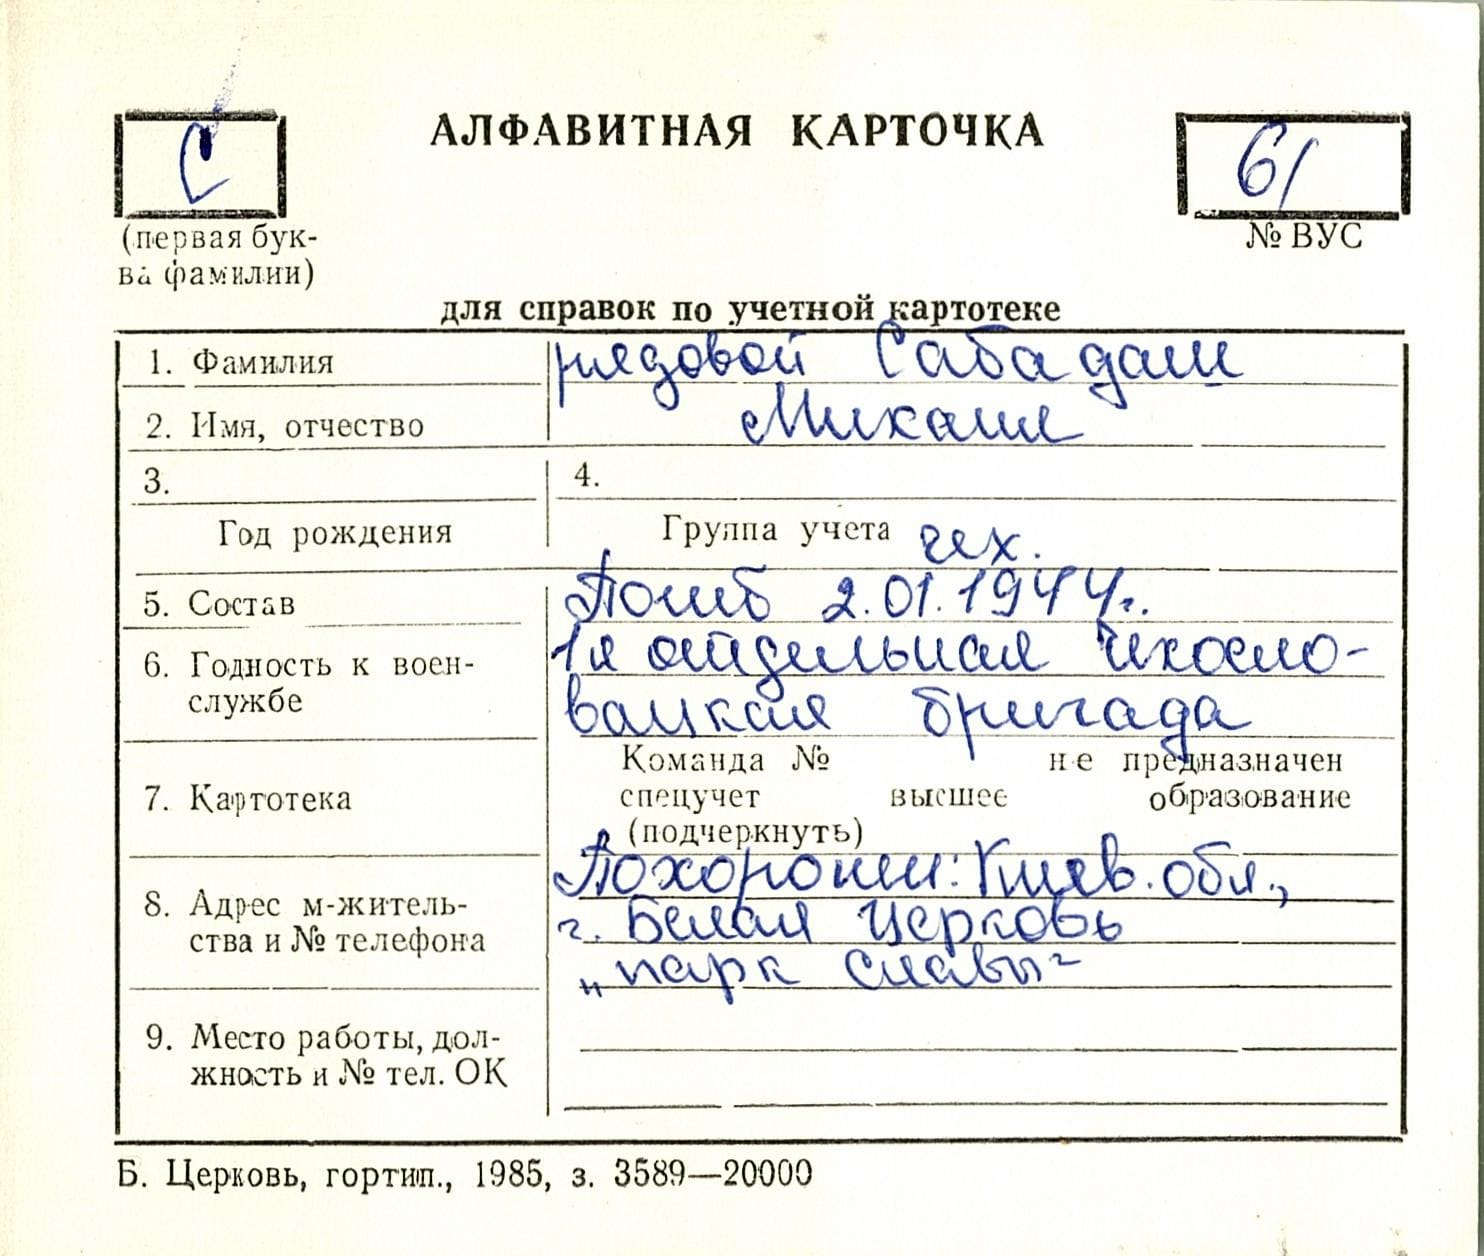 С
АЛФАВИТНАЯ КАРТОЧКА
61
(первая бук-
ва фамилии)
№ ВУС
для справок по учетной картотеке
1. Фамилия
рядовой Сабадаш
2. Имя, отчество
Михаил
3.
4.
Год рождения
Группа учета чех.
5. Состав
Погиб 2.01.1944г.
6. Годность к воен-
службе
1я отдельная чехосло-
вацкая бригада
7. Картотека
Команда № не предназначен
спецучет высшее образование
(подчеркнуть)
8. Адрес м-житель-
ства и № телефона
Похоронен: Киев. обл.,
г. Белая Церковь
„парк Славы"
9. Место работы, дол-
жность и № тел. ОК
Б. Церковь, гортип., 1985, з. 3589—20000